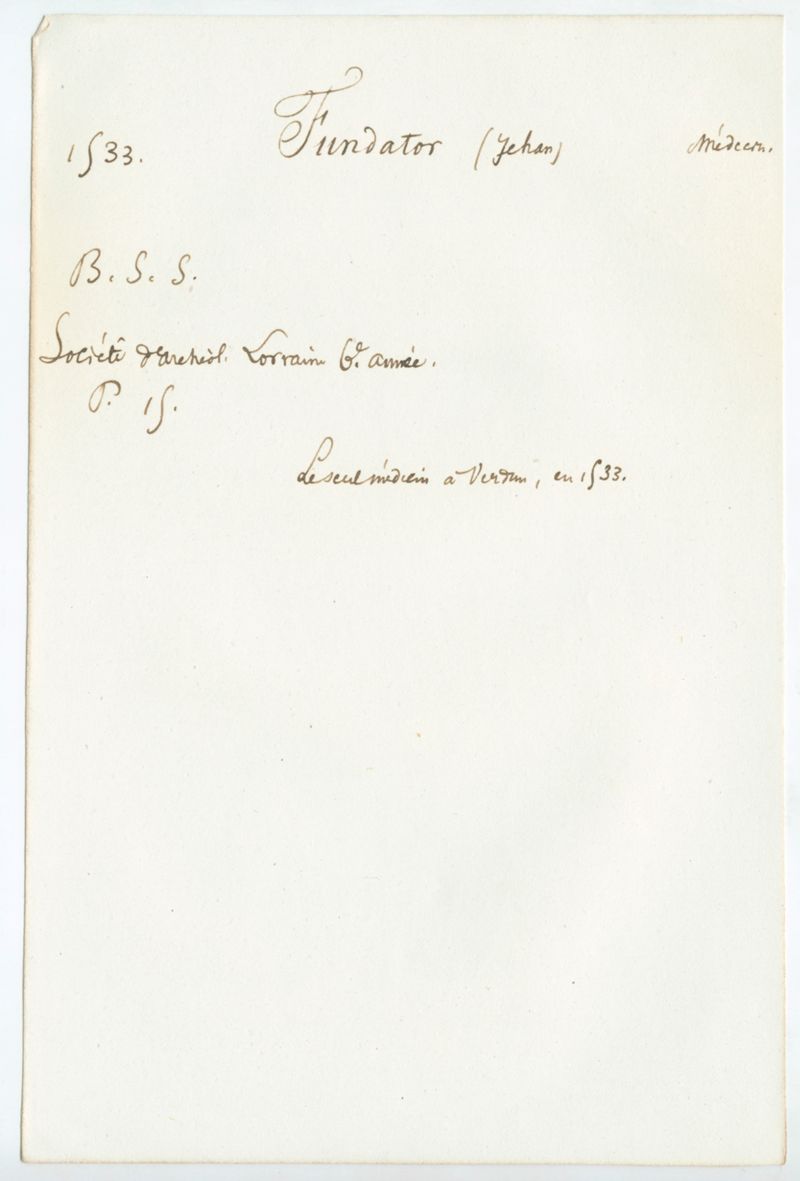 1533. Fundator (Jehan) Médecin.
B. S. S.
Société d'archéol. Lorraine 6e. année.
P. 15.
Le seul médecin à Verdun, en 1533.